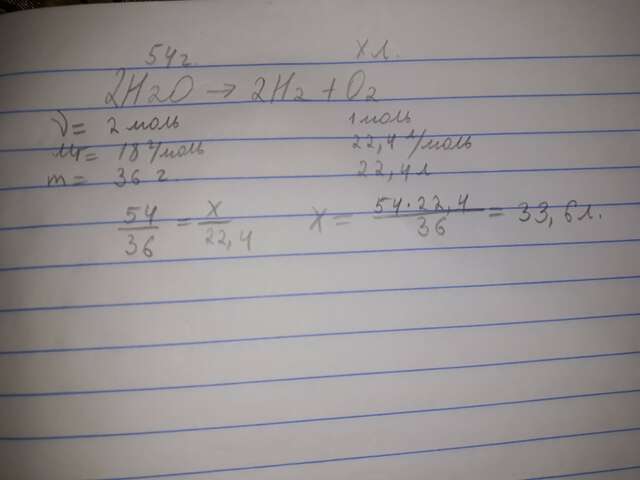 54 г. х л.
2H2O → 2H2 + O2
ν = 2 моль 1 моль
Mr = 18 г/моль 22,4 л/моль
m = 36 г 22,4 л
54/36 = x/22,4 X = 54·22,4/36 = 33,6 л.